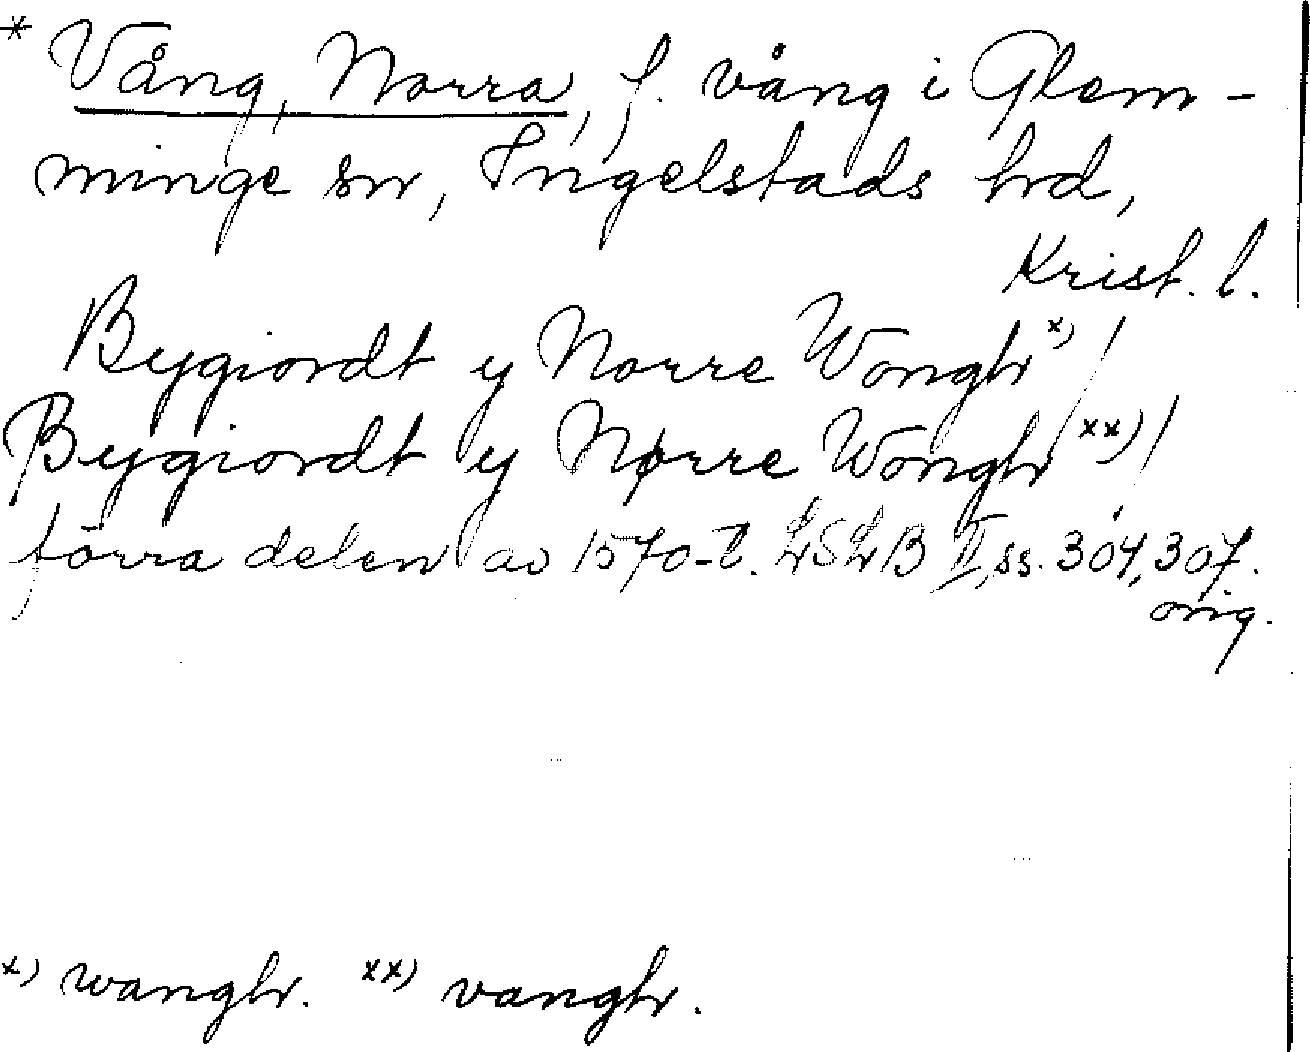 * Vång, Norra, f. vång i Glem-
minge sn, Ingelstads hrd,
Krist. l.
Bygiordt y Norre Wongh x) /
Bygiordt y Nørre Wongh xx) /
förra delen av 1570-t. LSLB II, ss. 304, 307.
orig.
x) wangh. xx) vangh.